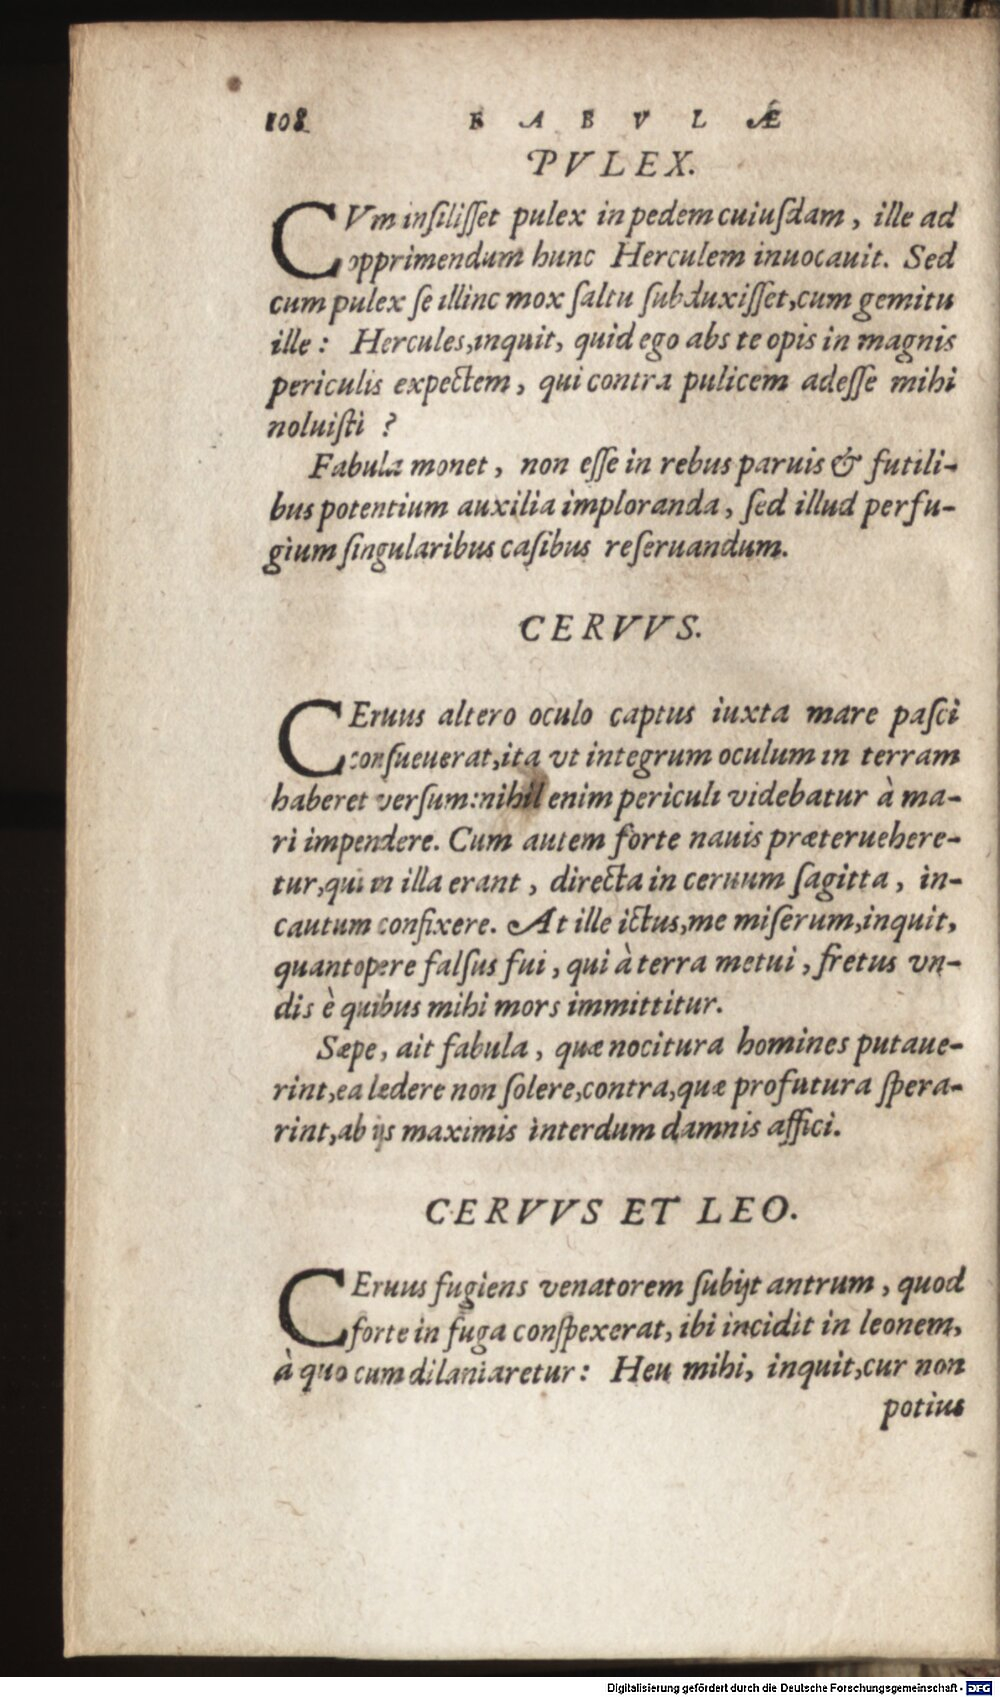 108 F A B V L Æ
PVLEX.
CVm insilisſet pulex in pedem cuiuſdam, ille ad
opprimendum hunc Herculem inuocauit. Sed
cum pulex ſe illinc mox ſaltu ſubduxiſſet, cum gemitu
ille: Hercules, inquit, quid ego abs te opis in magnis
periculis expectem, qui contra pulicem adeſſe mihi
noluiſti ?
Fabula monet, non eſſe in rebus paruis & futili-
bus potentium auxilia imploranda, ſed illud perfu-
gium ſingularibus caſibus reſeruandum.
CERVVS.
CEruus altero oculo captus iuxta mare paſci
conſueuerat, ita vt integrum oculum in terram
haberet verſum: nihil enim periculi videbatur à ma-
ri impendere. Cum autem forte nauis præteruehere-
tur, qui in illa erant, directa in ceruum ſagitta, in-
cautum confixere. At ille ictus, me miſerum, inquit,
quantopere falſus fui, qui à terra metui, fretus vn-
dis è quibus mihi mors immittitur.
Sæpe, ait fabula, quæ nocitura homines putaue-
rint, ea lædere non ſolere, contra, quæ profutura ſpera-
rint, ab ijs maximis interdum damnis affici.
CERVVS ET LEO.
CEruus fugiens venatorem ſubijt antrum, quod
forte in fuga conſpexerat, ibi incidit in leonem,
à quo cum dilaniaretur: Heu mihi, inquit, cur non
potius
Digitalisierung gefördert durch die Deutsche Forschungsgemeinschaft - DFG